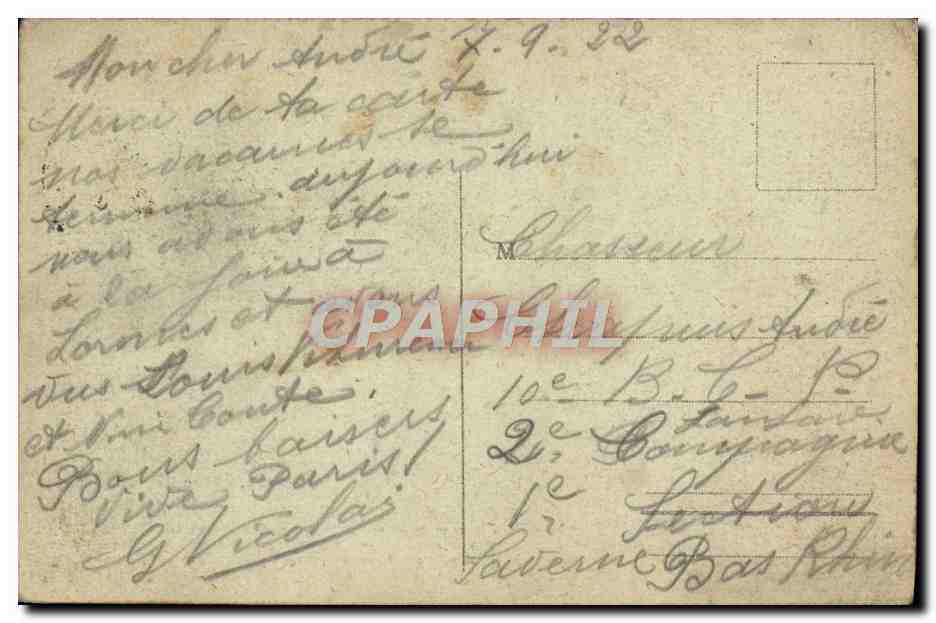 Mon cher André 7.9.22
Merci de ta carte
nos vacances se
termine aujourd'hui
nous avons été
à la foire à
Lormes et avons
vus Louis
et Mme Conte.
Bons baisers
Vive Paris!
G Nicolas
M Chasseur
André
10e B. C. P
Fanfare
2e. Compagnie
1e Section
Saverne Bas Rhin
CPAPHIL